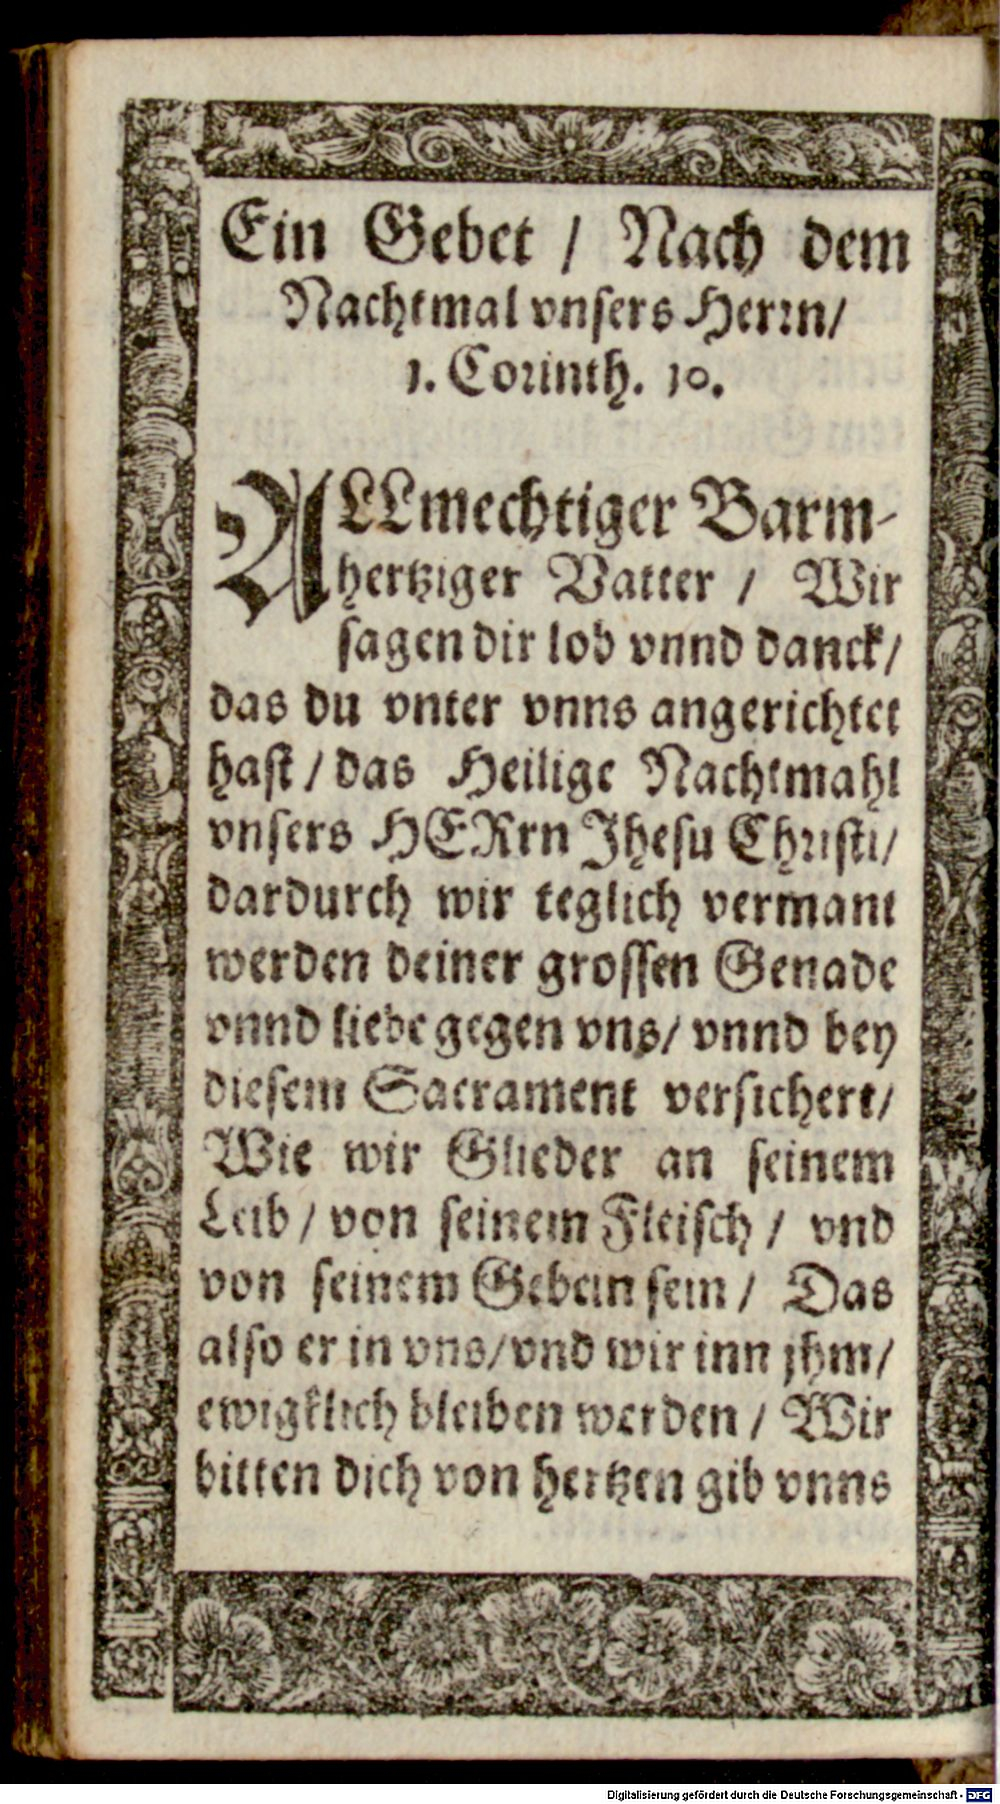 Ein Gebet / Nach dem
Nachtmal vnsers Herrn/
1. Corinth. 10.
ALLmechtiger Barm-
hertziger Vatter / Wir
sagen dir lob vnnd danck/
das du vnter vnns angerichtet
hast / das Heilige Nachtmahl
vnsers HERrn Jhesu Christi/
dardurch wir teglich vermant
werden deiner grossen Genade
vnnd liebe gegen vns/ vnnd bey
diesem Sacrament versichert/
Wie wir Glieder an seinem
Leib / von seinem Fleisch / vnd
von seinem Gebein sein / Das
also er in vns/vnd wir inn jhm/
ewigklich bleiben werden / Wir
bitten dich von hertzen gib vnns
Digitalisierung gefördert durch die Deutsche Forschungsgemeinschaft - DFG